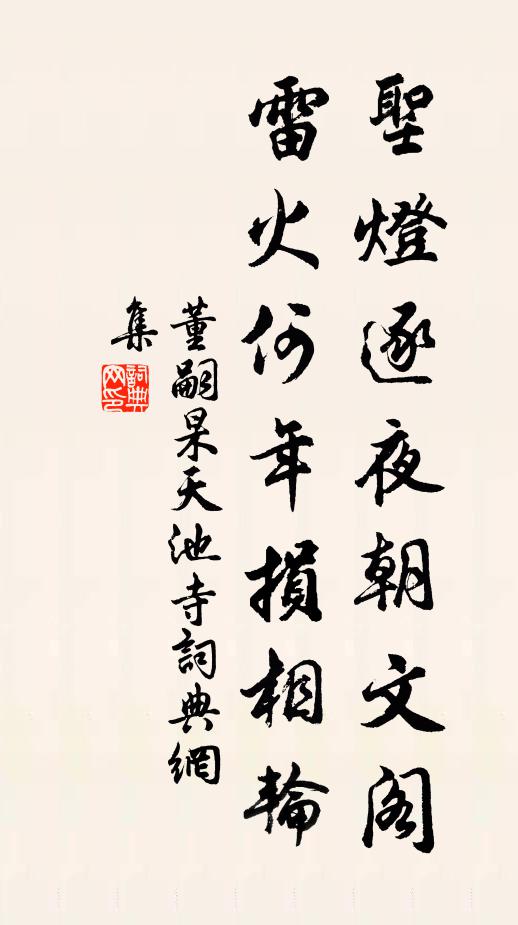 聖燈逐夜朝文閣
雷火何年損相輪
董嗣杲天池寺詞典網
集
詞典
网印